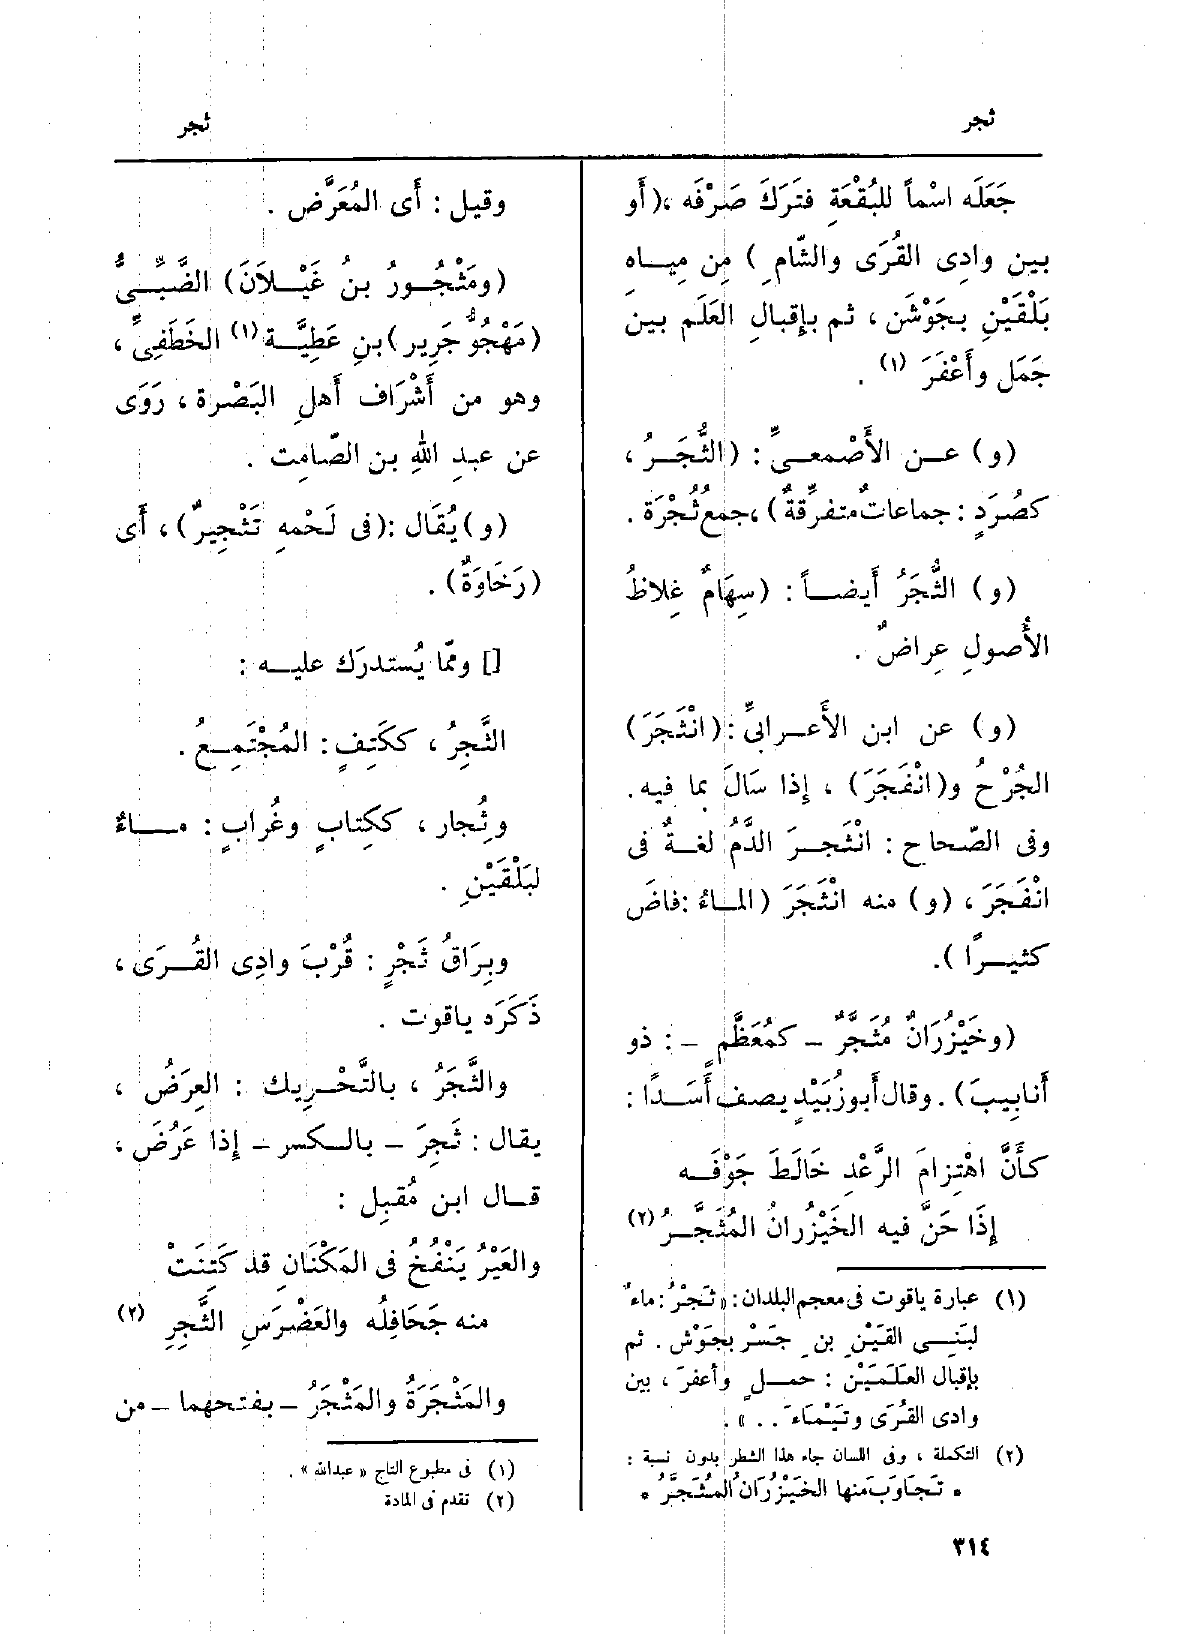 ثجر
ثجر
جَعَلَه اسْماً للبُقْعَةِ فتَرَكَ صَرْفَه ،(أَو
بين وادِى القُرَى والشّامِ ) مِن مِيــاهِ
بَلْقَيْنِ بجَوْشَن ، ثم بإِقبالِ العَلَم بين
جَمَل وأَعْفَرَ (١) .
(و) عــن الأَصْمعــىِّ : (الثُّجَــرُ ،
كصُرَدٍ : جماعاتٌ متفرِّقةٌ) ،جمعُ ثُجْرَة .
(و) الثُّجَرُ أَيضــاً : (سِهَامٌ غِلاظُ
الأُصولِ عِراضٌ .
(و) عن ابن الأَعــرابىِّ :(انْثَجَرَ)
الجُرْحُ و(انْفَجَرَ) ، إِذا سَالَ بما فيه .
وفى الصّحاح : انْثَجــرَ الدَّمُ لغــةٌ فى
انْفَجَرَ ، (و) منه انْثَجَرَ (المــاءُ :فاضَ
كثيــرًا ).
(وخَيْزُرَانٌ مُثَجَّرٌ – كمُعَظَّمٍ – : ذو
أَنابِيبَ) .وقال أَبوزُبَيْدٍ يصف أَسَــدًا :
كأَنَّ اهْتِزامَ الرَّعْدِ خَالَطَ جَوْفَــه
إِذَا حَنَّ فيه الخَيْزُرانُ المُثَجَّــرُ (٢)
(١) عبارة ياقوت فى معجم البلدان : « ثَجْرُ : ماءٌ
لبَنِــى القَيْنِ بنِ جَسْرٍ بجَوْش . ثم
بإقبال العَلَمَيْن : حمــلٍ وأعفرَ ، بين
وادى القُرَى وتَيْمَاءَ . . » .
(٢) التكملة ، وفى اللسان جاء هذا الشطر بدون نسبة :
• تَجَاوَبَ منها الخَيْزُرَانُ المُثَجَّرُ •
وقيل : أَى المُعَرَّض .
(ومَثْجُــورُ بنُ غَيْــلاَنَ) الضَّبِّــىُّ
(مَهْجُوُّ جَرِير )بنِ عَطِيَّــة(١) الخَطَفِىِّ ،
وهو من أَشْرَاف أَهلِ البَصْرة ، رَوَى
عن عبدِ اللهِ بن الصّامِت .
(و) يُقَال :(فى لَحْمهِ تَثْجِيرٌ) ، أَى
(رَخَاوَةٌ) .
[] وممّا يُستدرَك عليــه :
الثَّجِرُ ، ككَتِفٍ : المُجْتَمِــعُ .
وثُِجار ، ككِتابٍ وغُرابٍ : مــاءٌ
لبَلْقَيْنِ .
وبِرَاقُ ثَجْرٍ : قُرْبَ وادِى القُــرَى ،
ذَكَرَه ياقوت .
والثَّجَرُ ، بالتَّحْــرِيك : العِرَضُ ،
يقال : ثَجِرَ – بالــكسر – إِذا عَرُضَ ،
قــال ابن مُقبِل :
والعَيْرُ يَنْفُخُ فى المَكْنَانِ قد كَتِنَتْ
منه جَحَافِلُه والعَضْرَسِ الثَّجِرِ (٢)
والمَثْجَرَةُ والمَثْجَرُ – بفتحهما – من
(١) فى مطبوع التاج « عبدالله » .
(٢) تقدم فى المادة
٣١٤